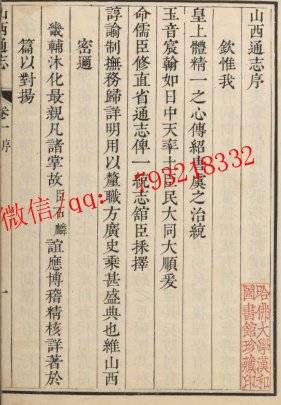 山西通志序
欽惟我
皇上體精一之心傳紹唐虞之治統
玉音宸翰如日中天率土臣民大同大順爰
命儒臣修直省通志俾一統志舘臣採擇
諄諭制撫務歸詳明用以釐職方廣史乘甚盛典也維山西
密邇
畿輔沐化最親凡諸掌故臣石麟誼應博稽精核詳著於
篇以對揚
山西通志
卷一序
一
哈佛大學漢和圖書館珍藏印
微信/qq:593218332